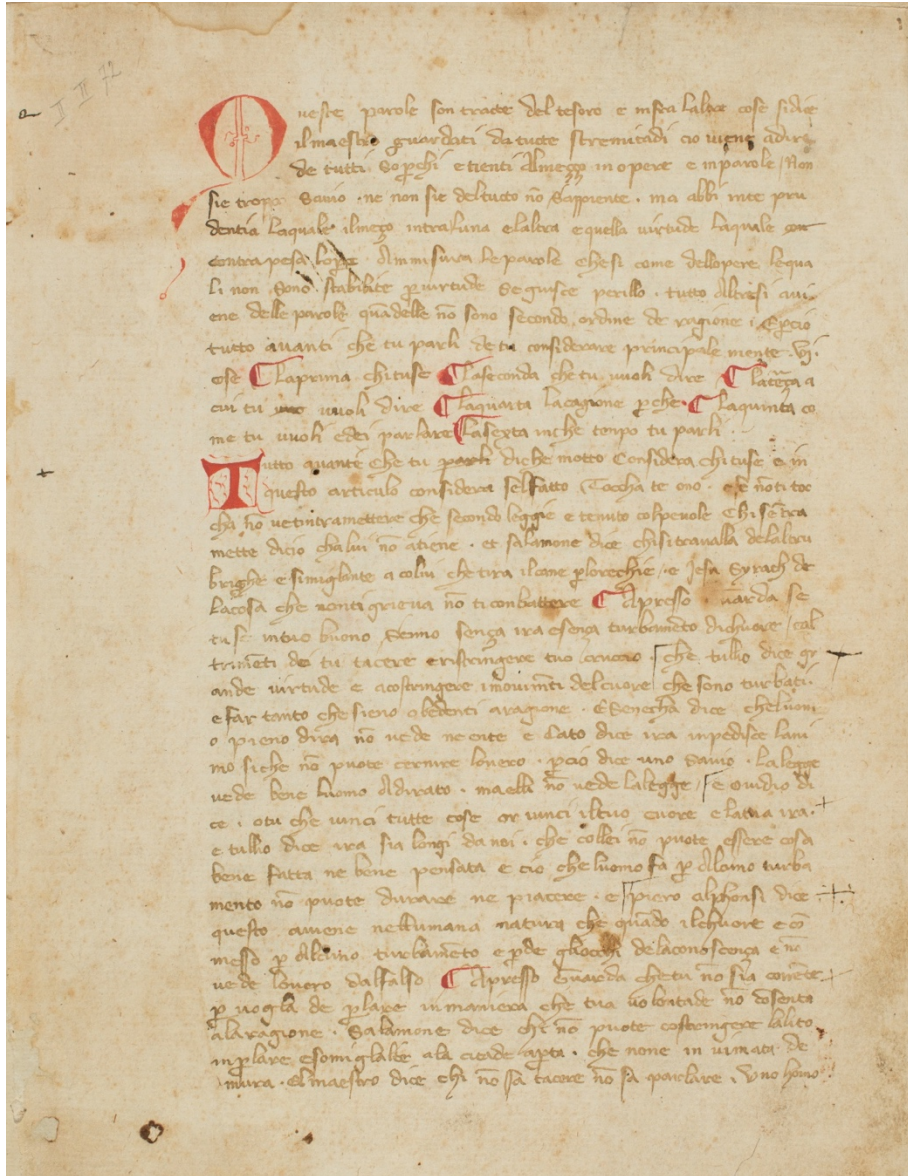 II III 72
Queste parole son tracte del tesoro e infra laltre cose sidice
ilmaestro guardati da tucte stremitadi cio viene adire
de tutti soꝑchi e tienti almeço in opere e in parole / Non
sie troppo savio · ne non sie deltucto nō sappiente · ma abbi inte pru
dentia laquale ilmeço intraluna elaltra equella virtude laquale
contrapesa lopre · Ammisura le parole chesi come dellopere lequa
li non sono stabilite ꝑ virtude segiusce perillo · tutto altresi avi
ene delle parole quādelle nō sono secondo ordine de ragione · Eꝑcio
tutto avanti che tu parli de tu considerare principale mente · vj ·
cose laprima chituse laseconda che tu vuoli dire laterça a
cui tu vuoli dire laquarta lacagione ꝑche · laquinta co
me tu vuoli edei parlare lasexta inche tenpo tu parli
Tutto avante che tu parli diche motto considera chituse e in
questo articulo considera selfatto toccha te ono · e se nōti toc
cha nō vetintramettere che secondo leggie e tenuto colpevole chi sētra
mette dicio chalui nō atiene · et salamone dice chisitravalla delaltru
brighe e simiglante acolui chetira ilcane ꝑlorechie · e Jesa Syrach de
lacosa che nonti grieva nō ticonbattere Apresso · Guarda se
tuse intuo buono senno sença ira esença turbamēto dichuore / cal
trimēti dei tu tacere eristringere tuo cruccio che tullio dice gr
ande virtude e acostringere imovimēti delcuore che sono turbati ·
efar tanto che sieno obedenti aragione · ESenecha dice cheluom
o pieno dira nō vede neente e Cato dice ira inpedisce lani
mo siche nō puote cernire lovero · ꝑcio dice uno savio · lalegge
vede bene luomo adirato · maelli nō vede lalegge / e ovidio di
ce · otu che vinci tutte cose or vinci iltuo cuore elatua ira ·
e tullio dice ira sia longi da noi · che collei nō puote essere cosa
bene fatta ne bene pensata e cio cheluomo fa ꝑ alcuno turba
mento nō puote durare ne piacere · e piero alphonsi dice
questo aviene nellumana natura che quādo ilchuore e cō
messo ꝑ alchuno turbamēto eꝑde gliocchi delaconoscença e nō
vede lovero dalfalso Apresso Guarda chetu nō sia corrēte
ꝑ vogla de ꝑlare inmaniera che tua volontade nō cōsenta
alaragione · Salamone dice chi nō puote costringere lalito
inꝑlare esomiglāte ala citade aperta · che none in vimata de
mura · elmaestro dice chi nō sa tacere nō sa parlare · Uno homo